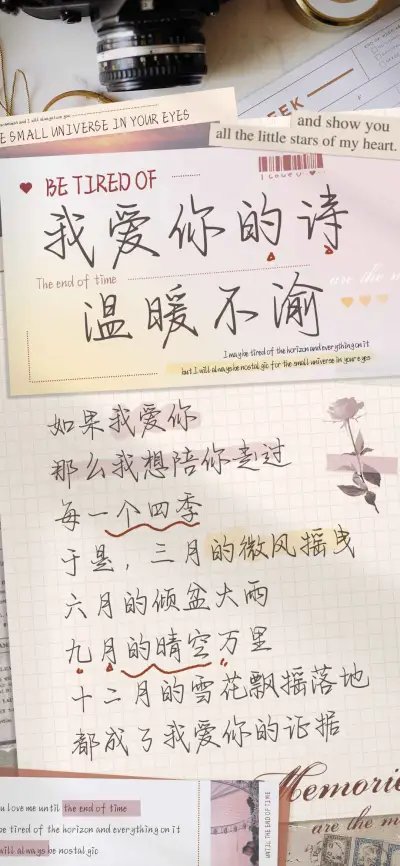 E SMALL UNIVERSE IN YOUR EYES
EEK
and show you
all the little stars of my heart.
BE TIRED OF
I Love U
我爱你的诗
The end of time
温暖不渝
I may be tired of the horizon and everything on it
but I will always be nostalgic for the small universe in your eyes
如果我爱你
那么我想陪你走过
每一个四季
于是，三月的微风摇曳
六月的倾盆大雨
九月的晴空万里
十二月的雪花飘摇落地
都成了我爱你的证据
Memorie
are the m
u love me until the end of time
be tired of the horizon and everything on it
will always be nostalgic
UNTIL THE END OF TIME